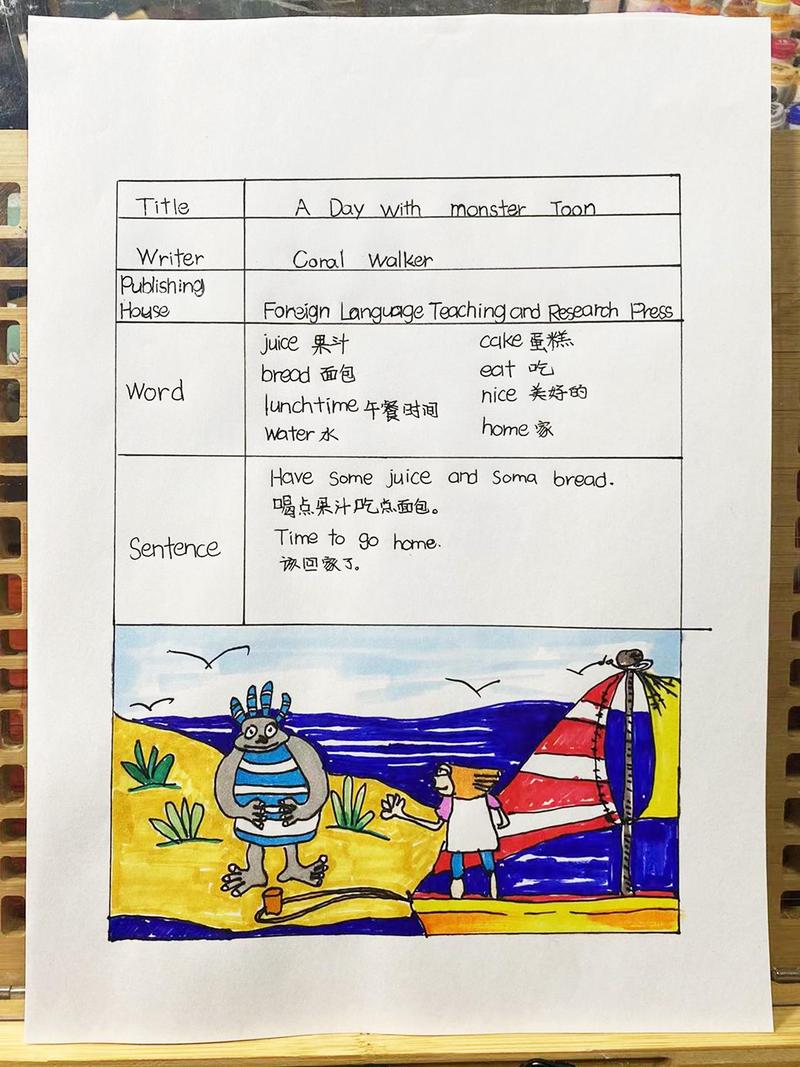 Title A Day with monster Toon
Writer Coral Walker
Publishing
House Foreign Language Teaching and Research Press
Word
juice 果汁 cake 蛋糕
bread 面包 eat 吃
lunchtime 午餐时间 nice 美好的
water 水 home 家
Sentence
Have some juice and soma bread.
喝点果汁吃点面包。
Time to go home.
该回家了。